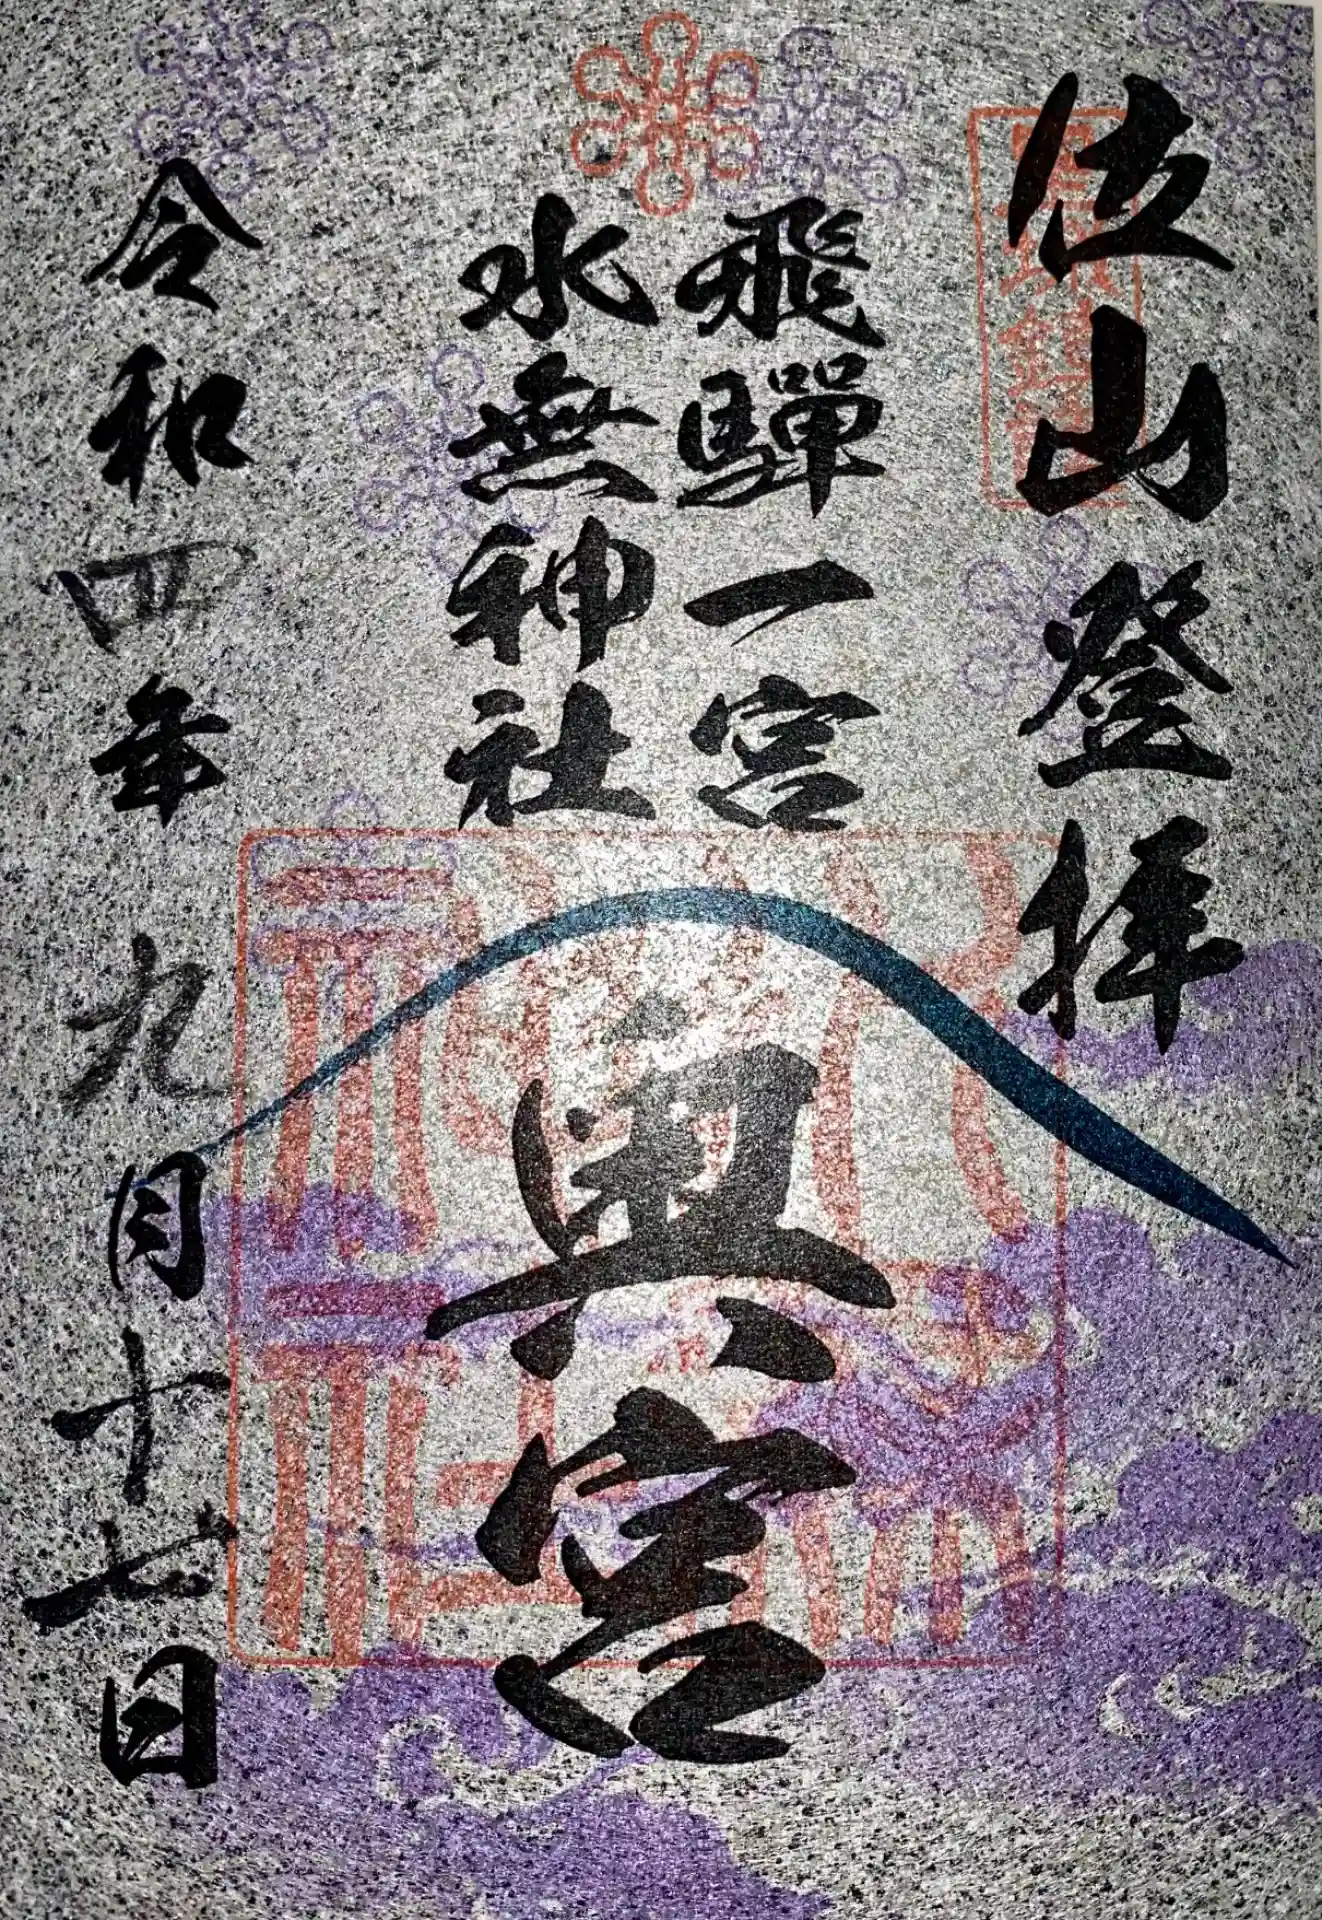 位山登拝
飛驒一宮
水無神社
奥宮
令和四年九月十七日
水無神社